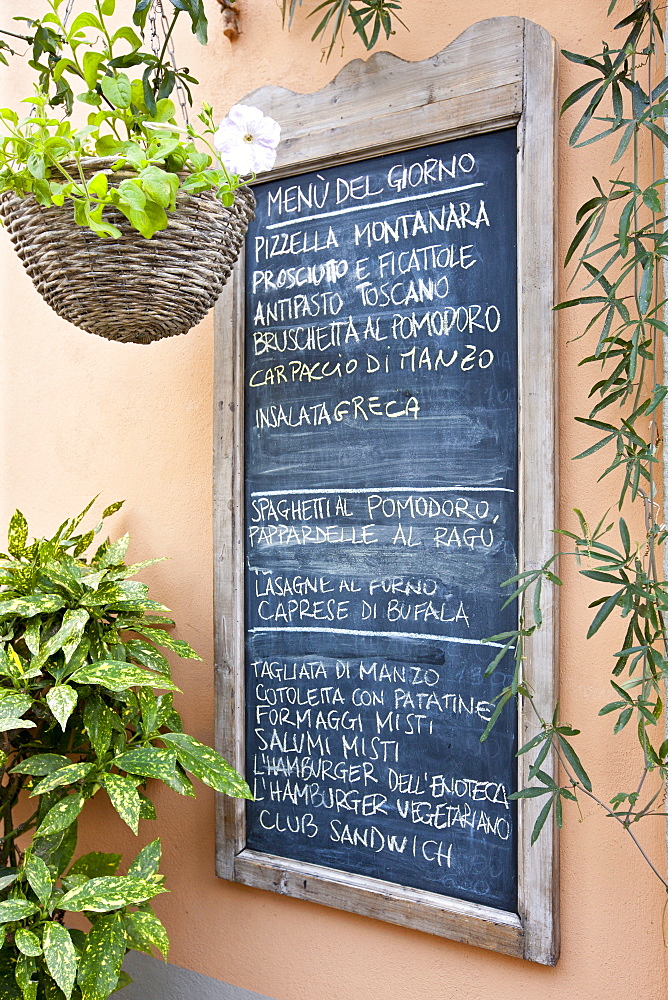 MENÙ DEL GIORNO
PIZZELLA MONTANARA
PROSCIUTTO E FICATTOLE
ANTIPASTO TOSCANO
BRUSCHETTA AL POMODORO
CARPACCIO DI MANZO
INSALATA GRECA
SPAGHETTI AL POMODORO
PAPPARDELLE AL RAGÙ
LASAGNE AL FORNO
CAPRESE DI BUFALA
TAGLIATA DI MANZO
COTOLETTA CON PATATINE
FORMAGGI MISTI
SALUMI MISTI
L'HAMBURGER DELL'ENOTECA
L'HAMBURGER VEGETARIANO
CLUB SANDWICH